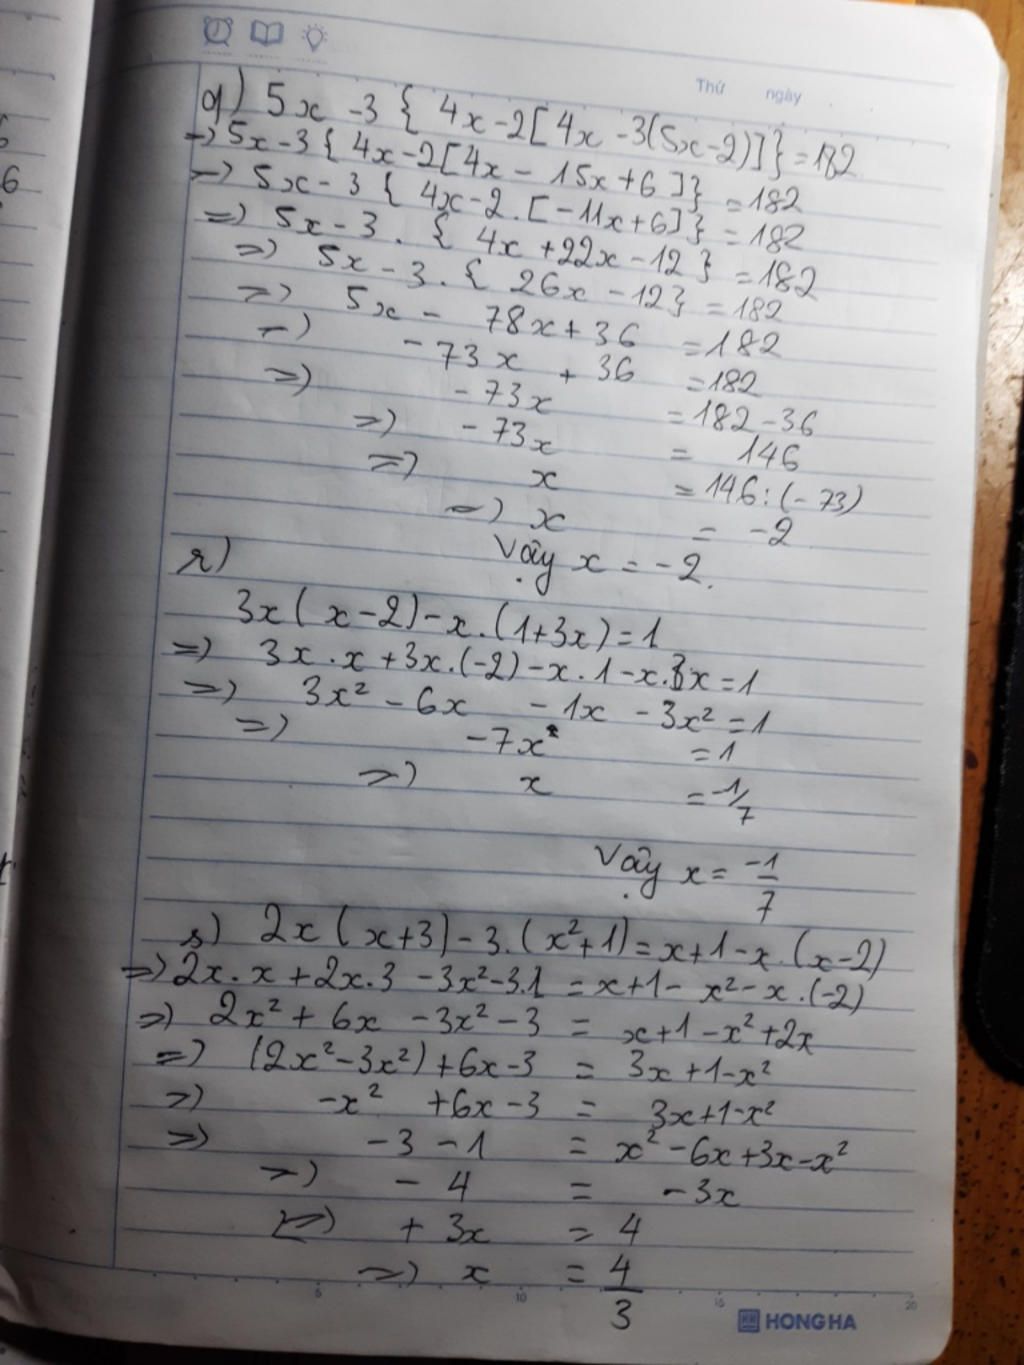 Thứ ngày
q) 5x - 3 { 4x - 2 [ 4x - 3(5x - 2) ] } = 182
=> 5x - 3 { 4x - 2 [ 4x - 15x + 6 ] } = 182
=> 5x - 3 { 4x - 2 . [ - 11x + 6 ] } = 182
=> 5x - 3 . { 4x + 22x - 12 } = 182
=> 5x - 3 . { 26x - 12 } = 182
=> 5x - 78x + 36 = 182
=> - 73x + 36 = 182
=> - 73x = 182 - 36
=> - 73x = 146
=> x = 146 : (- 73)
=> x = -2
Vậy x = -2.
r)
3x ( x - 2) - x . (1 + 3x) = 1
=> 3x . x + 3x . (-2) - x . 1 - x . 3x = 1
=> 3x² - 6x - 1x - 3x² = 1
=> - 7x = 1
=> x = -1/7
Vậy x = -1/7
s) 2x ( x + 3) - 3 . ( x² + 1) = x + 1 - x . (x - 2)
=> 2x . x + 2x . 3 - 3x² - 3.1 = x + 1 - x² - x . (-2)
=> 2x² + 6x - 3x² - 3 = x + 1 - x² + 2x
=> (2x² - 3x²) + 6x - 3 = 3x + 1 - x²
=> -x² + 6x - 3 = 3x + 1 - x²
=> - 3 - 1 = x² - 6x + 3x - x²
=> - 4 = - 3x
<=> + 3x = 4
=> x = 4/3
5 10 15 20
HONG HA